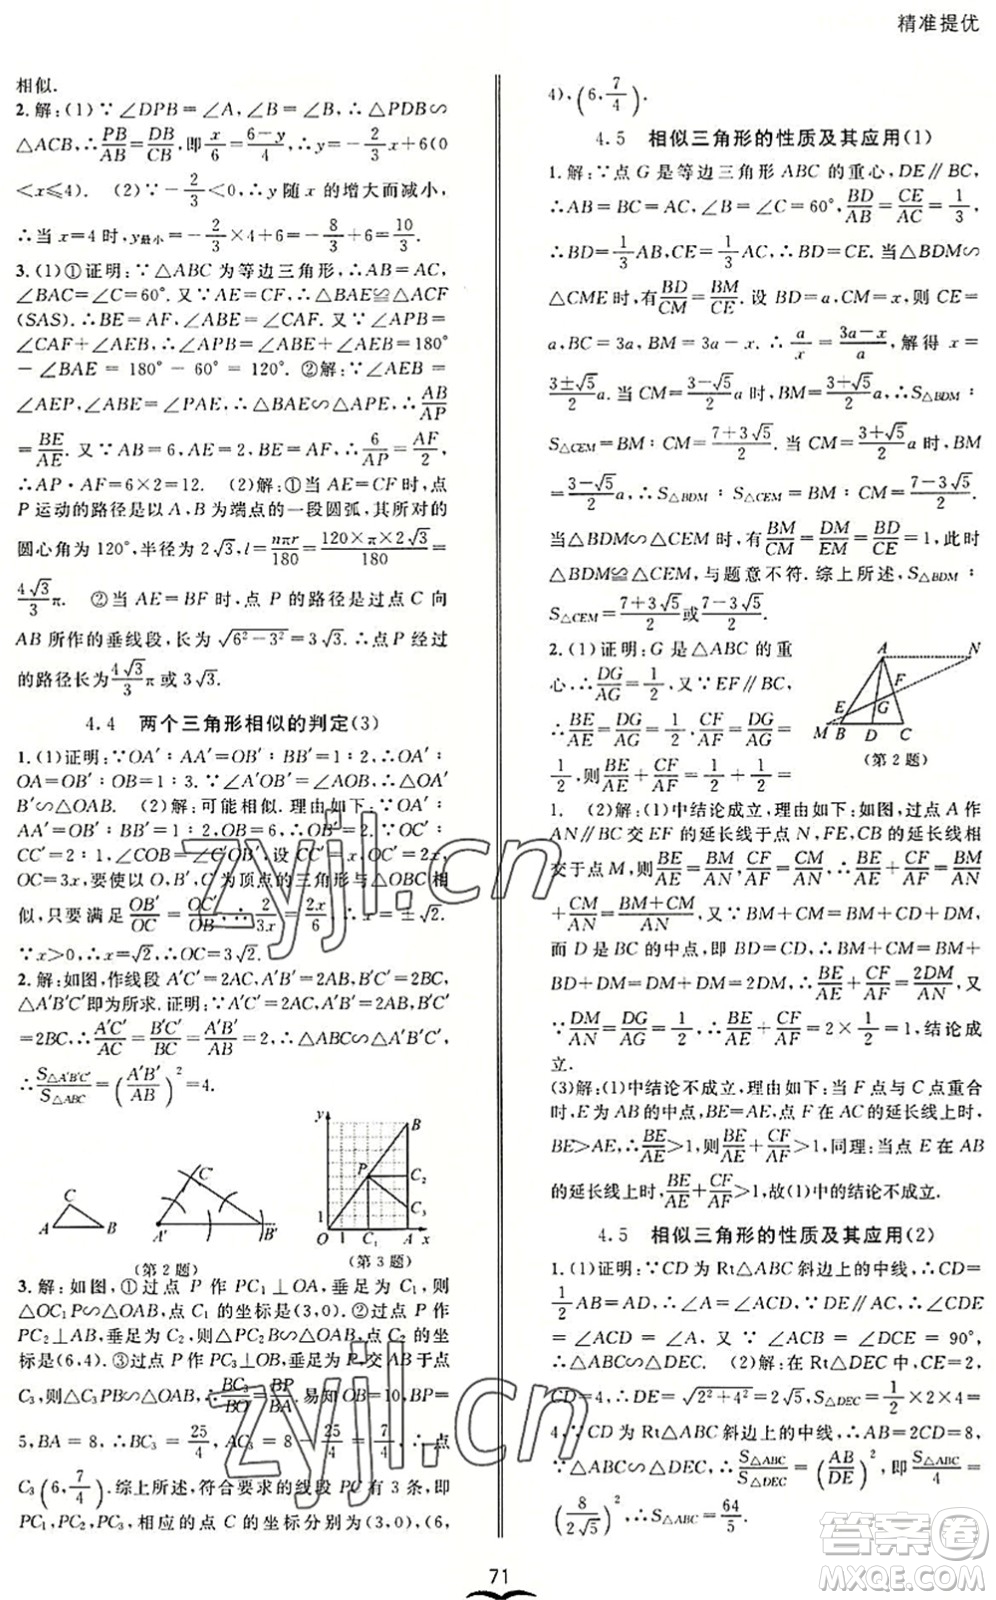 精准提优
相似.
2.解:(1)∵∠DPB=∠A,∠B=∠B,∴△PDB∽
△ACB,∴PB/AB=DB/CB,即x/6=(6-y)/6,∴y=-2/3x+6(0
<x≤4). (2)∵-2/3<0,∴y随x的增大而减小,
∴当x=4时,y最小=-2/3×4+6=-8/3+6=10/3.
3.(1)①证明:∵△ABC为等边三角形,∴AB=AC,
∠BAC=∠C=60°.又∵AE=CF,∴△BAE≌△ACF
(SAS).∴BE=AF,∠ABE=∠CAF.又∵∠APB=
∠CAF+∠AEB,∴∠APB=∠ABE+∠AEB=180°
-∠BAE=180°-60°=120°.②解:∵∠AEB=
∠AEP,∠ABE=∠PAE,∴△BAE∽△APE,∴AB/AP
=BE/AE.又∵AB=6,AE=2,BE=AF,∴6/AP=AF/2,
∴AP·AF=6×2=12. (2)解:①当AE=CF时,点
P运动的路径是以A,B为端点的一段圆弧,其所对的
圆心角为120°,半径为2√3,l=nπr/180=(120×π×2√3)/180=
4√3/3π. ②当AE=BF时,点P的路径是过点C向
AB所作的垂线段,长为√(6²-3²)=3√3.∴点P经过
的路径长为4√3/3π或3√3.
4.4 两个三角形相似的判定(3)
1.(1)证明:∵OA′∶AA′=OB′∶BB′=1∶2,∴OA′∶
OA=OB′∶OB=1∶3.∵∠A′OB′=∠AOB,∴△OA′
B′∽△OAB. (2)解:可能相似.理由如下:∵OA′∶
AA′=OB′∶BB′=1∶2,∴OB′∶OB=1∶3.∵OC′∶
CC′=2∶1,∠COB=∠C′OB′,设CC′=x,OC′=2x,
OC=3x,要使以O,B′,C′为顶点的三角形与△OBC相
似,只要满足OB′/OC=OC′/OB,∴2/3x=2x/6,∴x=±√2.
∵x>0,∴x=√2,∴CC′=√2.
2.解:如图,作线段A′C′=2AC,A′B′=2AB,B′C′=2BC,
△A′B′C′即为所求.证明:∵A′C′=2AC,A′B′=2AB,B′C′
=2BC,∴A′C′/AC=B′C′/BC=A′B′/AB=2,∴△ABC∽△A′B′C′,
∴S△A′B′C′/S△ABC=(A′B′/AB)²=4.
A B C
A′ B′ C′
(第2题)
y B P C₂ C₃ 1 O 1 C₁ A x
(第3题)
3.解:如图,①过点P作PC₁⊥OA,垂足为C₁,则
△OC₁P∽△OAB,点C₁的坐标是(3,0).②过点P作
PC₂⊥AB,垂足为C₂,则△PC₂B∽△OAB,点C₂的坐
标是(6,4).③过点P作PC₃⊥OB,垂足为P交AB于点
C₃,则△C₃PB∽△OAB,∴BC₃/BO=BP/BA.易知OB=10,BP=
5,BA=8,∴BC₃=25/4,∴AC₃=8-25/4=7/4,∴点
C₃(6,7/4).综上所述,符合要求的线段PC有3条,即
PC₁,PC₂,PC₃,相应的点C的坐标分别为(3,0),(6,
4),(6,7/4).
4.5 相似三角形的性质及其应用(1)
1.解:∵点G是等边三角形ABC的重心,DE∥BC,
∴AB=BC=AC,∠B=∠C=60°,BD/AB=CE/AC=1/3,
∴BD=1/3AB,CE=1/3AC,∴BD=CE.当△BDM∽
△CME时,有BD/CM=BM/CE.设BD=a,CM=x,则CE=
a,BC=3a,BM=3a-x.∴a/x=(3a-x)/a,解得x=
(3±√5)/2a.当CM=(3-√5)/2a时,BM=(3+√5)/2a,∴S△BDM∶
S△CEM=BM∶CM=(7+3√5)/2.当CM=(3+√5)/2a时,BM
=(3-√5)/2a,∴S△BDM∶S△CEM=BM∶CM=(7-3√5)/2.
当△BDM∽△CEM时,有BM/CM=DM/EM=BD/CE=1,此时
△BDM≌△CEM,与题意不符.综上所述,S△BDM∶
S△CEM=(7+3√5)/2或(7-3√5)/2.
2.(1)证明:G是△ABC的重
心,∴DG/AG=1/2,又∵EF∥BC,
∴BE/AE=DG/AG=1/2,CF/AF=DG/AG=
1/2,则BE/AE+CF/AF=1/2+1/2=
A N F E G M B D C
(第2题)
1. (2)解:(1)中结论成立,理由如下:如图,过点A作
AN∥BC交EF的延长线于点N,FE,CB的延长线相
交于点M,则BE/AE=BM/AN,CF/AF=CM/AN,∴BE/AE+CF/AF=BM/AN
+CM/AN=(BM+CM)/AN.又∵BM+CM=BM+CD+DM,
而D是BC的中点,即BD=CD,∴BM+CM=BM+
BD+DM=DM+DM=2DM,∴BE/AE+CF/AF=2DM/AN,
又∵DM/AN=DG/AG=1/2,∴BE/AE+CF/AF=2×1/2=1,结论成
立.
(3)解:(1)中结论不成立,理由如下:当F点与C点重合
时,E为AB的中点,点F在AC的延长线上时,
BE>AE,∴BE/AE>1,则BE/AE+CF/AF>1,同理:当点E在AB
的延长线上时,BE/AE+CF/AF>1,故(1)中的结论不成立.
4.5 相似三角形的性质及其应用(2)
1.(1)证明:∵CD为Rt△ABC斜边上的中线,∴CD=
1/2AB=AD,∴∠A=∠ACD.∵△ABC∽△CDE
=∠ACD=∠A,又∵∠ACB=∠DCE=90°,
∴△ABC∽△DEC. (2)解:在Rt△DEC中,CE=2,
CD=4,∴DE=√(2²+4²)=2√5,S△DEC=1/2×2×4=
4.∵CD为Rt△ABC斜边上的中线,∴AB=2CD=8,
∵△ABC∽△DEC,∴S△ABC/S△DEC=(AB/DE)²,即S△ABC/4
=(8/2√5)²,∴S△ABC=64/5.
71
zyjl.cn
zyjl.cn
答案卷
MXQE.COM